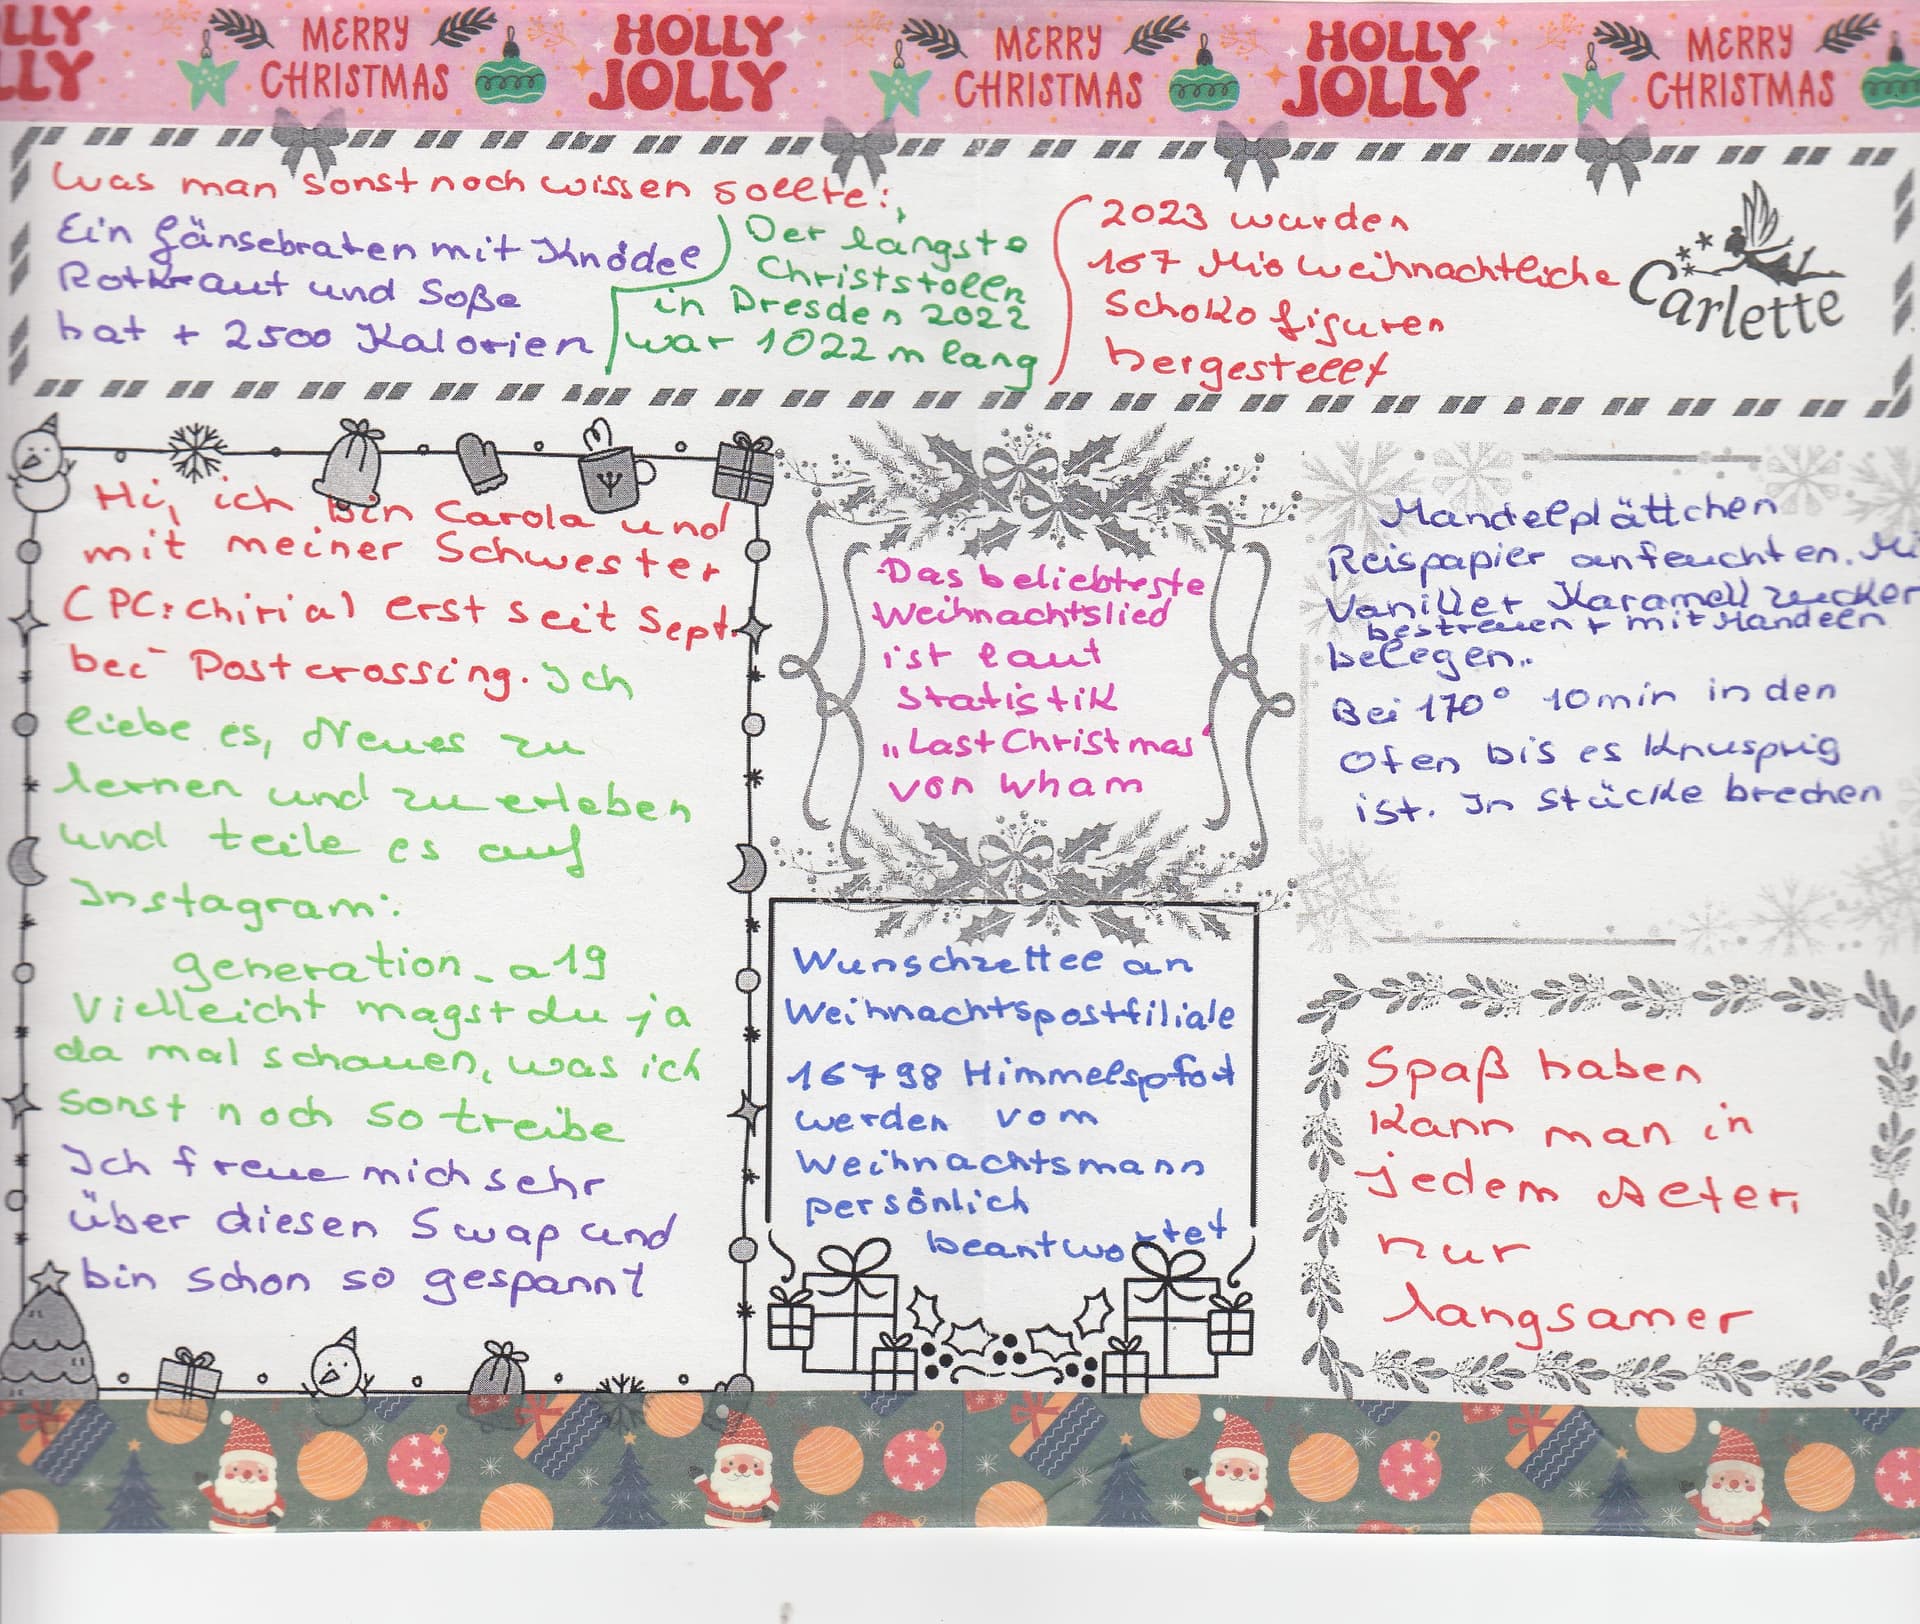 LLY
LLY
MERRY
CHRISTMAS
HOLLY
JOLLY
MERRY
CHRISTMAS
HOLLY
JOLLY
MERRY
CHRISTMAS
Was man sonst noch wissen sollte:
Ein Gänsebraten mit Knödel
Rotkraut und Soße
hat + 2500 Kalorien
Der längste
Christstollen
in Dresden 2022
war 1022 m lang
2023 wurden
167 Mio weihnachtliche
Schoko figuren
hergestellt
Carlette
Hi, ich bin Carola und
mit meiner Schwester
(PC: chiria) erst seit Sept.
bei Postcrossing. Ich
liebe es, Neues zu
lernen und zu erleben
und teile es auf
Instagram:
generation_a19
Vielleicht magst du ja
da mal schauen, was ich
sonst noch so treibe
Ich freue mich sehr
über diesen Swap und
bin schon so gespannt
Das beliebteste
Weihnachtslied
ist laut
Statistik
„Last Christmas“
von Wham
Wunschzettel an
Weihnachtspostfiliale
16798 Himmelspfort
werden vom
Weihnachtsmann
persönlich
beantwortet
Mandelplättchen
Reispapier anfeuchten. Mi
Vanille + Karamell zucker
bestreuen + mit Mandeln
belegen.
Bei 170° 10min in den
Ofen bis es knusprig
ist. In Stücke brechen
Spaß haben
kann man in
jedem Alter,
nur
langsamer